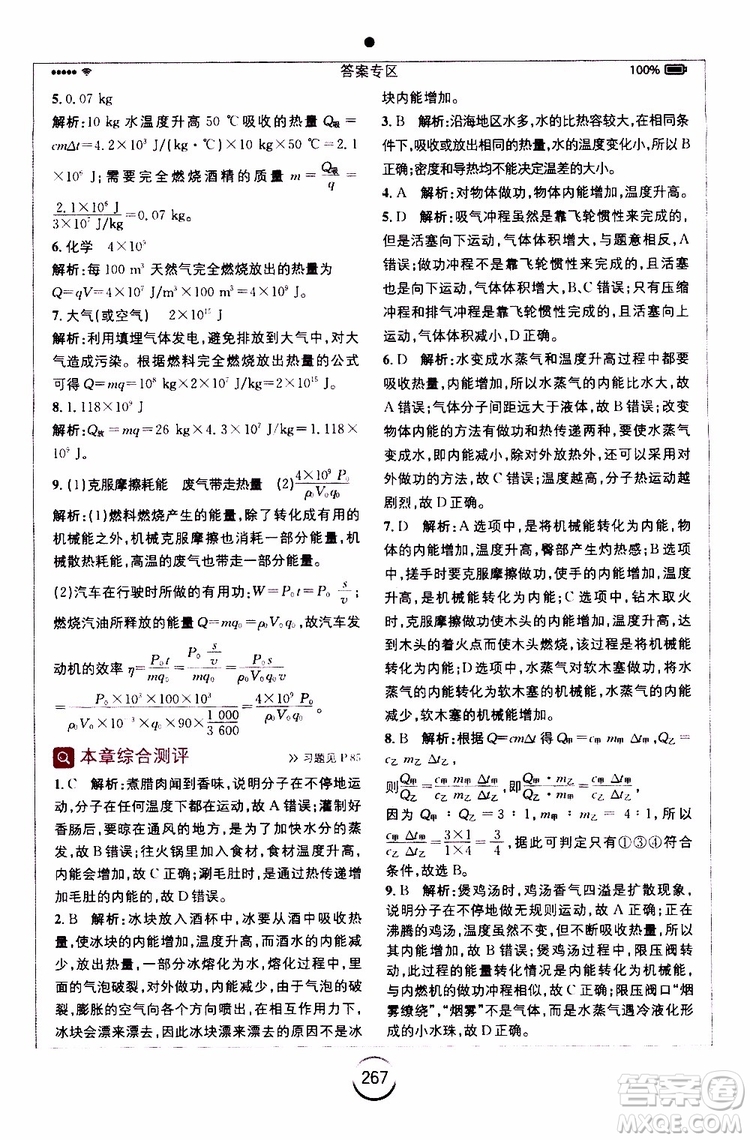 答案专区
100%
5. 0.07 kg
解析:10 kg 水温度升高 50 ℃吸收的热量 Q吸
=cmΔt=4.2×10³ J/(kg·℃)×10 kg×50 ℃=
2.1×10⁶ J;需要完全燃烧酒精的质量 m=Q吸/q=
2.1×10⁶ J/3×10⁷ J/kg=0.07 kg。
6. 化学 4×10⁹
解析:每 100 m³ 天然气完全燃烧放出的热量为
Q=qV=4×10⁷ J/m³×100 m³=4×10⁹ J。
7. 大气(或空气) 2×10¹⁵ J
解析:利用填埋气体发电,避免排放到大气中,对大
气造成污染。根据燃料完全燃烧放出热量的公式
可得 Q=mq=10⁸ kg×2×10⁷ J/kg=2×10¹⁵ J。
8. 1.118×10⁹ J
解析:Q放=mq=26 kg×4.3×10⁷ J/kg=1.118×
10⁹ J。
9. (1)克服摩擦耗能 废气带走热量 (2)4×10⁹ P₀/ρ₀V₀q₀
解析:(1)燃料燃烧产生的能量,除了转化成有用的
机械能之外,机械克服摩擦也消耗一部分能量,机
械散热耗能,高温的废气也带走一部分能量。
(2)汽车在行驶时所做的有用功:W=P₀t=P₀s/v;
燃烧汽油所释放的能量 Q=mq₀=ρ₀V₀q₀,故汽车发
动机的效率 η=P₀t/mq₀=P₀s/v/ρ₀V₀q₀=P₀s/ρ₀V₀q₀v=
P₀×10³×100×10³/ρ₀V₀×q₀×90×1 000/3 600=4×10⁹ P₀/ρ₀V₀q₀
本章综合测评 >> 习题见 P85
1. C 解析:煮腊肉闻到香味,说明分子在不停地运
动,分子在任何温度下都可以运动,故 A 错误;灌制好
香肠后,要晾在通风的地方,是为了加快水分的蒸
发,故 B 错误;往火锅里加入食材,食材温度升高,
内能一定增加,故 C 正确;涮毛肚时,是通过热传递增
加毛肚的内能的,故 D 错误。
2. B 解析:冰块放入酒杯中,冰要向酒中吸收热
量,使冰块的内能增加,温度升高,在升温到熔点
时,一部分冰熔化为水,熔化过程中,由于气泡的
破裂,对外做功,内能有所减小。由于冰块中的气泡
破裂,膨胀的空气向各个方向喷出,在破裂瞬间使
冰块漂来漂去。故冰块漂来漂去的原因不是冰
块内能增加。
3. B 解析:沿海地区水多,水的比热容较大,在相同条
件下,吸收或放出相同的热量,水的温度变化小,所以 B
正确;密度和导热均不能决定温差的大小。
4. A 解析:对物体做功,物体内能增加,温度升高。
5. D 解析:吸气冲程虽然是靠飞轮惯性来完成
的,但是活塞向下运动,气体体积增大,与题意不符,故 A
错误;做功冲程不是靠飞轮惯性完成的,且活塞
向下运动,气体体积增大,故 B、C 错误;只有压缩
冲程和排气冲程是靠飞轮惯性完成的,且活塞向上
运动,气体体积减小,故 D 正确。
6. D 解析:水变成水蒸气和温度升高过程中都要
吸收热量,内能增加,所以水蒸气的内能增大,故 A
错误;气体分子间距远大于液体,故 B 错误;改变
物体内能的方法有做功和热传递两种,而水蒸气
变成水,内能减小,除对外放热外,还可以采用对
外做功的方法,故 C 错误;温度越高,分子热运动越
剧烈,故 D 正确。
7. D 解析:A 选项中,是将机械能转化为内能,使
内能增大,温度升高,臀部产生灼热感;B 选项
中,搓手时要克服摩擦做功,手的内能增加,温度
升高,是将机械能转化为内能;C 选项中,钻木取火时
要克服摩擦做功,使木头的内能增加,温度升高,达
到木头的着火点而使木头燃烧,故该过程是将机械能
转化为内能;D 选项中,水蒸气对软木塞做功,水蒸
气的内能转化为软木塞的机械能,故水蒸气的内能
减少,软木塞的机械能增大。
8. B 解析:根据 Q=cmΔt 可知,Q甲=c甲m甲Δt甲,Q乙=
c乙m乙Δt乙,
则Q甲/Q乙=c甲/c乙·m甲/m乙·Δt甲/Δt乙,即c甲/c乙=Q甲/Q乙·m乙/m甲·Δt乙/Δt甲,
因为 Q甲∶Q乙=3∶1,m甲∶m乙=4∶1,所以
c甲/c乙·Δt甲/Δt乙=3×1/1×4=3/4,据此可判定只有①③④符合
条件,故选 B。
9. B 解析:煲鸡汤时,鸡汤香气四溢是扩散现象,
说明分子在不停地做无规则运动,故 A 正确;在
沸腾的鸡汤中,鸡汤虽然要不断吸收热量,所以
其内能增加,故 B 错误;煲鸡汤过程中,限压阀转动
过程的能量转化情况是内能转化为机械能,
与内燃机的做功冲程相似,故 C 正确;限压阀口“烟
雾缭绕”,“烟雾”不是气体,而是水蒸气遇冷液化形
成的小水珠,故 D 正确。
267
答案圈